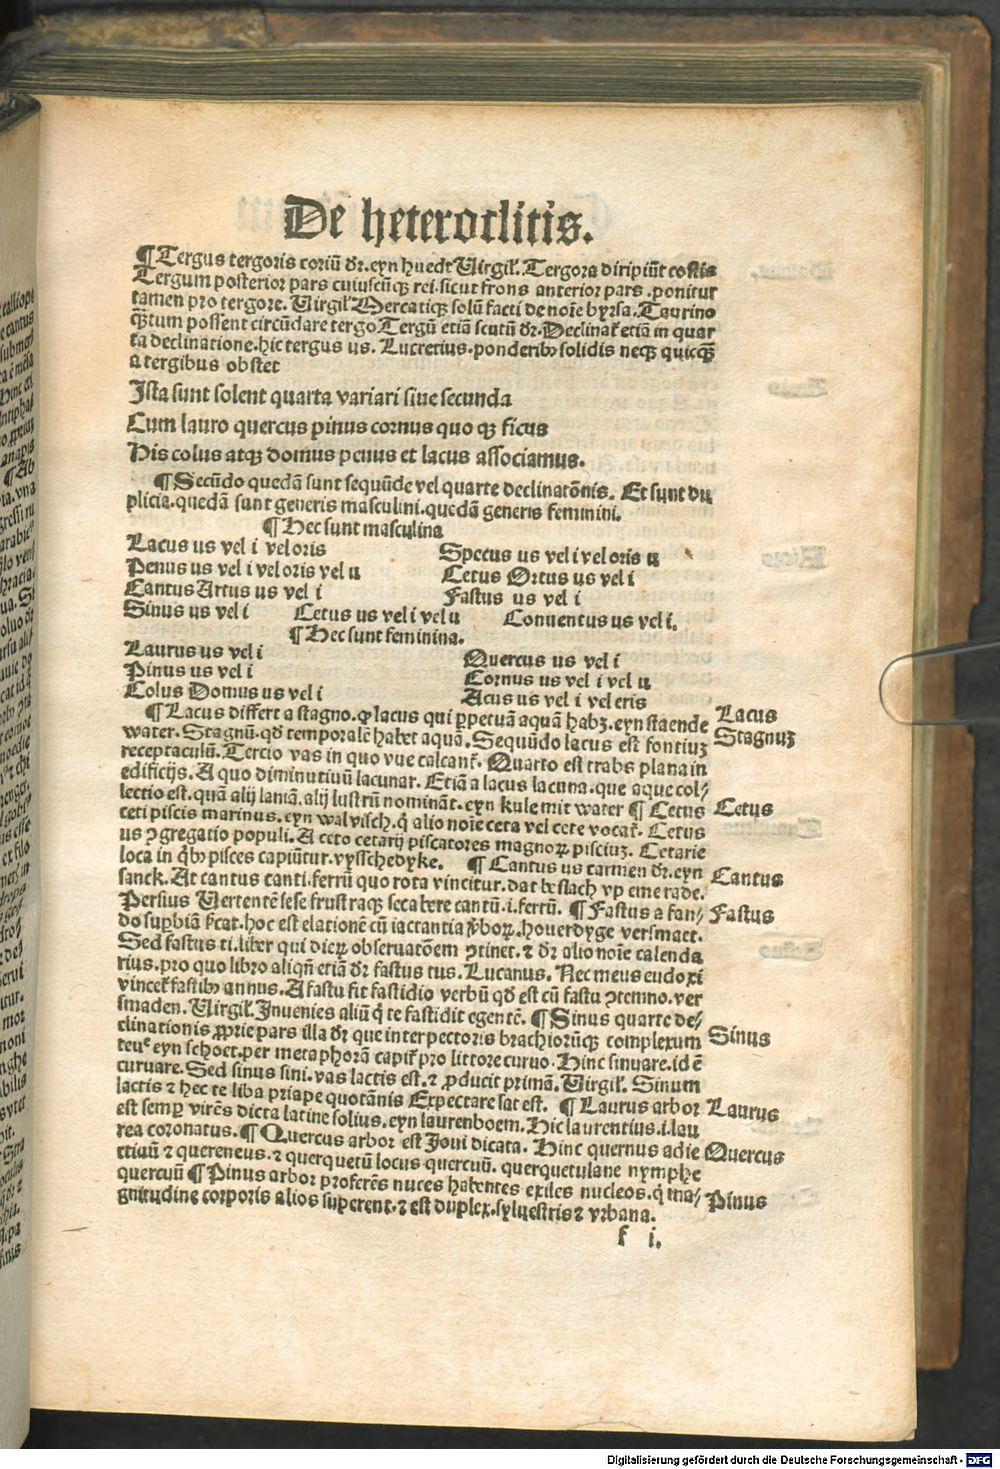 De heteroclitis.
¶ Tergus tergoris coriū dr̄. eyn huedt Virgil̛. Tergora diripiūt costis
Tergum posterior pars cuiuscūqꝫ rei. sicut frons anterior pars. ponitur
tamen pro tergore. Virgil̛ Mercatiqꝫ solū facti de noīe byrsa. Taurino
qꝫtum possent circūdare tergo Tergū etiā scutū dr̄. Declinat̛ etiā in quar
ta declinatione. hic tergus us. Lucretius. ponderibꝫ solidis neqꝫ quicqꝫ
a tergibus obstet
Ista sunt solent quarta variari siue secunda
Cum lauro quercus pinus cornus quo qꝫ ficus
His colus atqꝫ domus penus et lacus associamus.
¶ Secūdo quedā sunt sequūde vel quarte declinatōnis. Et sunt du
plicia. quedā sunt generis masculini. quedā generis feminini.
¶ Hec sunt masculina
Lacus us vel i vel oris Specus us vel i vel oris u
Penus us vel i vel oris vel u Cetus Ortus us vel i
Cantus Artus us vel i Fastus us vel i
Sinus us vel i Cetus us vel i vel u Conuentus us vel i.
¶ Hec sunt feminina.
Laurus us vel i Quercus us vel i
Pinus us vel i Cornus us vel i vel u
Colus Domus us vel i Acus us vel i vel eris
¶ Lacus differt a stagno. qꝛ lacus qui ꝑpetuā aquā habꝫ. eyn staende
water. Stagnū. qd̄ temporalē habet aquā. Sequūdo lacus est fontiuꝫ
receptaculū. Tercio vas in quo vue calcant̛. Quarto est trabs plana in
edificijs. A quo diminutiuū lacunar. Etiā a lacus lacuna. que aque col⸗
lectio est. quā alij lamā. alij lustrū nomināt. eyn kule mit water ¶ Cetus
ceti piscis marinus. eyn walvisch. q̄ alio noīe ceta vel cete vocat̛. Cetus
us ꝯgregatio populi. A ceto cetarij piscatores magnoꝝ pisciuꝫ. Cetarie
loca in q̄bꝫ pisces capiūtur. vysschedyke. ¶ Cantus us carmen dr̄. eyn
sanck. At cantus canti. ferrū quo rota vincitur. dat beslach vp eine rade.
Persius Vertentē sese frustraqꝫ secabere cantū .i. ferrū. ¶ Fastus a fan⸗
do suꝑbiā sc̄at. hoc est elationē cū iactantia v̄boꝝ. houerdyge versmact.
Sed fastus ti. liber qui dieꝝ obseruatōem ꝯtinet. ⁊ dr̄ alio noīe calenda
rius. pro quo libro aliqn̄ etiā dr̄ fastus tus. Lucanus. Nec meus eudoxi
vincet̛ fastibꝫ annus. A fastu fit fastidio verbū qd̄ est cū fastu ꝯtemno. ver
smaden. Virgil̛. Inuenies aliū q̄ te fastidit egentē. ¶ Sinus quarte de⸗
clinationis ꝓprie pars illa dr̄ que inter pectoris brachiorūqꝫ complexum
eyn schoet. per metaphorā capit̛ pro littore curuo. Hinc sinuare. id ē
curuare. Sed sinus sini. vas lactis est. ⁊ ꝓducit primā. Virgil̛. Sinum
lactis ⁊ hec te liba priape quotānis Expectare sat est. ¶ Laurus arbor
est semꝑ virēs dicta latine solius. eyn laurenboem. Hic laurentius .i. lau
rea coronatus. ¶ Quercus arbor est Ioui dicata. Hinc quernus adie
ctiuū ⁊ quereneus. ⁊ querquetū locus quercuū. querquetulane nymphe
quercuū ¶ Pinus arbor proferēs nuces habentes exiles nucleos. q̄ ma⸗
gnitudine corporis alios superent. ⁊ est duplex. syluestris ⁊ vrbana.
f i.
Lacus
Stagnuꝫ
Cetus
Cantus
Fastus
Sinus
Laurus
Quercus
Pinus
Digitalisierung gefördert durch die Deutsche Forschungsgemeinschaft - DFG